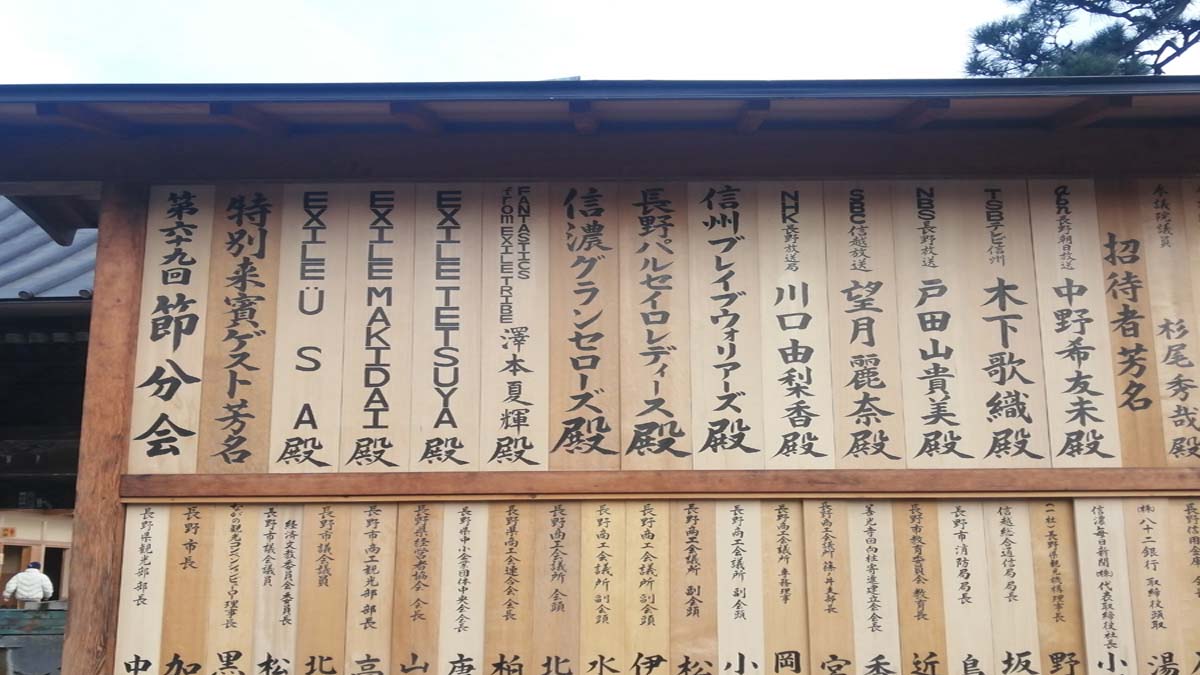 第六十九回 節分会
特別来賓ゲスト芳名
EXILE ÜSA 殿
EXILE MAKIDAI 殿
EXILE TETSUYA 殿
FANTASTICS from EXILE TRIBE 澤本夏輝 殿
信濃グランセローズ 殿
長野パルセイロレディース 殿
信州ブレイブウォリアーズ 殿
NHK長野放送局 川口由梨香 殿
SBC信越放送 望月麗奈 殿
NBS長野放送 戸田山貴美 殿
TSBテレビ信州 木下歌織 殿
abn長野朝日放送 中野希友未 殿
招待者芳名
参議院議員 杉尾秀哉 殿
長野県観光部 部長 中
長野市長 加
ながの観光コンベンションビューロー理事長 黒
長野市議会議員 経済文教委員会 委員長 松
長野市議会議員 北
長野市商工観光部 部長 高
長野県経営者協会 会長 山
長野県中小企業団体中央会会長 唐
長野県商工会連合会会長 柏
長野商工会議所 会頭 北
長野商工会議所 副会頭 水
長野商工会議所 副会頭 伊
長野商工会議所 副会頭 松
長野商工会議所 副会頭 小
長野商工会議所 専務理事 岡
長野商工会議所 篠ノ井支部長 宮
善光寺回向柱寄進建立会会長 香
長野市教育委員会 教育長 近
長野市消防局 局長 島
信越総合通信局 局長 坂
(一社)長野県観光機構理事長 野
信濃毎日新聞(株)代表取締役社長 小
(株)八十二銀行 取締役頭取 湯
長野信用金庫